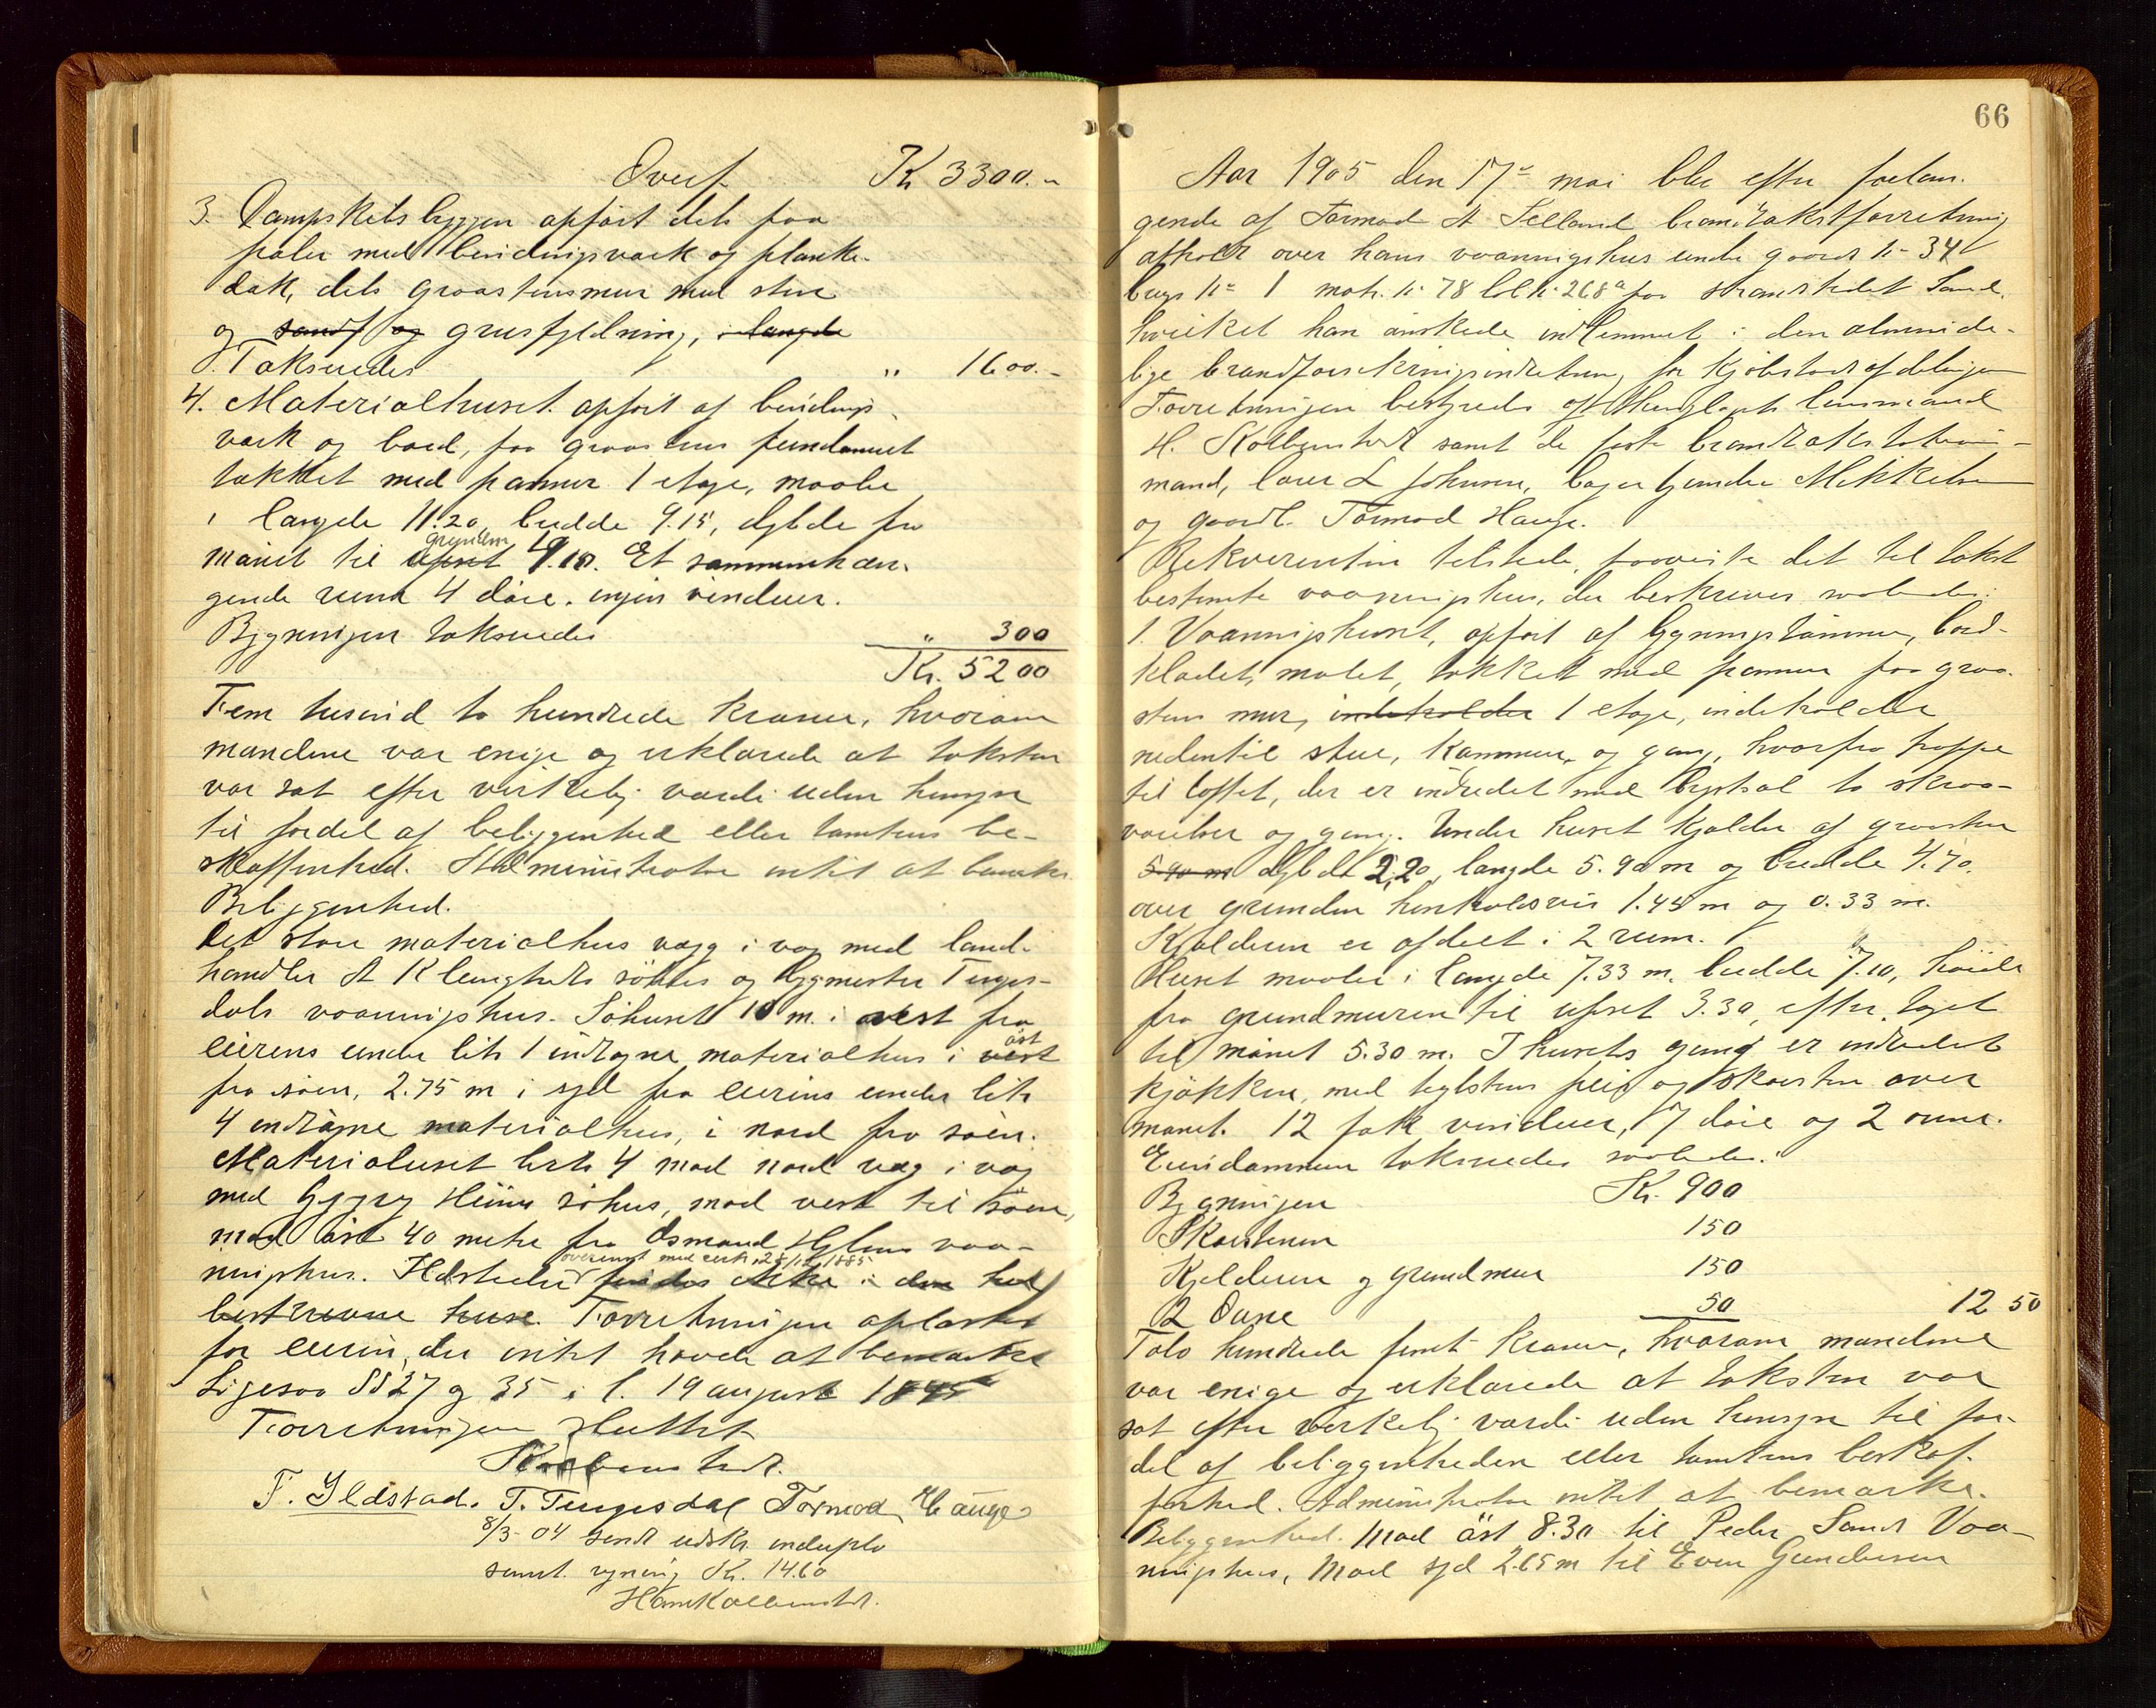 Overf. Kr 3300.-
3. Dampskibsbryggen opført dels paa
pæler med bindingsværk og planke-
dæk, dels graastensmur med sten
og sand og grusfyldning, længde
Takseredes " 1600.-
4. Materialhuset opført af bindings
værk og bord, paa graastens fundament
tækket med panner 1 etage, maaler
i længde 11.20, bredde 9.15, dybde fra
mønet til ufset grunden 4.10. Et sammenhæn-
gende rum 4 døre. ingen vinduer.
Bygningen takseredes " 300
Kr. 5200
Fem tusind to hundrede kroner, hvorom
mændene var enige og erklærede at taksten
var sat efter virkelig værdi uden hensyn
til fordel af beliggenhed eller tomtens be-
skaffenhed. Administrator intet at bemærke.
Beliggenhed.
Det store materialhus væg i væg med land-
handler A K søhus og bygmester Tenges-
dals vaaningshus. Søhuset 10 m. i vest fra
eierens under litr 1 indtagne materialhus i vest øst
fra søen, 2.75 m i syd fra eierens under litr
4 indtagne materialhus, i nord fra søen.
Materialuset litr 4 mod nord væg i væg
med søhus, mod vest til søen,
mod øst 40 meter fra Osmund vaa-
ningshus. Ildsteder findes ikke i den hel
overensst med cirk. 1885
beskrevne huse. Forretningen oplæstes
for eieren, der intet havde at bemærke
Ligesaa §§ 27 og 35 i l. 19 august 1845
Forretningen sluttet
Kolbenstvedt.
F. Ildstad. T. Tengesdal Tormod Hauge
8/3-04 sendt udskr.
samt regning Kr. 14.60
Hans Kolbenstvedt.
66
Aar 1905 den 17de mai blev efter forlan-
gende af Tormod A Telland brandtakstforretning
afholdt over hans vaaningshus under gaards no 34
brugs no 1 matr. no 78 lol no 268a paa strandstedet Sand,
hvilket han ønskede indlemmet i den alminde-
lige brandforsikringsindretning for kjøbstadsafdelingen
Forretningen bestyredes af lensmand
H. Kolbenstvedt samt de faste brandtakstations-
mænd, lærer L Johnsen, Mikkelsen
og gaardb. Tormod Hauge.
Rekvirenten tilstede, foreviste det til takst
bestemte vaaningshus, der beskrives saaledes:
1. Vaaningshuset, opført af bygningstømmer, bord-
klædet, malet, tækket med panner paa graa-
stens mur, indeholder 1 etage, indeholder
nedentil stue, kammer, og gang, hvorfra trappe
til loftet, der er indredet med to skraa-
værelser og gang. Under huset kjælder af graasten
5.90 m dybde 2,20, længde 5.90 m og bredde 4.70.
over grunden henholdsvis 1.45 m og 0.33 m.
Kjælderen er afdelt i 2 rum.
Huset maaler i længde 7.33 m. bredde 7.10, høide
fra grundmuren til ufset 3.30, efter taget
til mønet 5.30 m. I husets gang er indredet
kjøkken, med teglstens peis og skorsten over
mønet. 12 fak vinduer, 7 døre og 2 ovne.
Eiendommen takseredes saaledes:
Bygningen Kr. 900
Skorstenen 150
Kjelderen og grundmur 150
2 Ovne 50 1250
Tolv hundrede femti kroner, hvorom mændene
var enige og erklærede at taksten var
sat efter virkelig værdi uden hensyn til for-
del af beliggenheden eller tomtens beskaf-
fenhed. Administrator intet at bemærke.
Beliggenhed. Mod øst 8.30 til Peder Sands Vaa-
ningshus, Mod syd 2.65 m til Even Gundersen